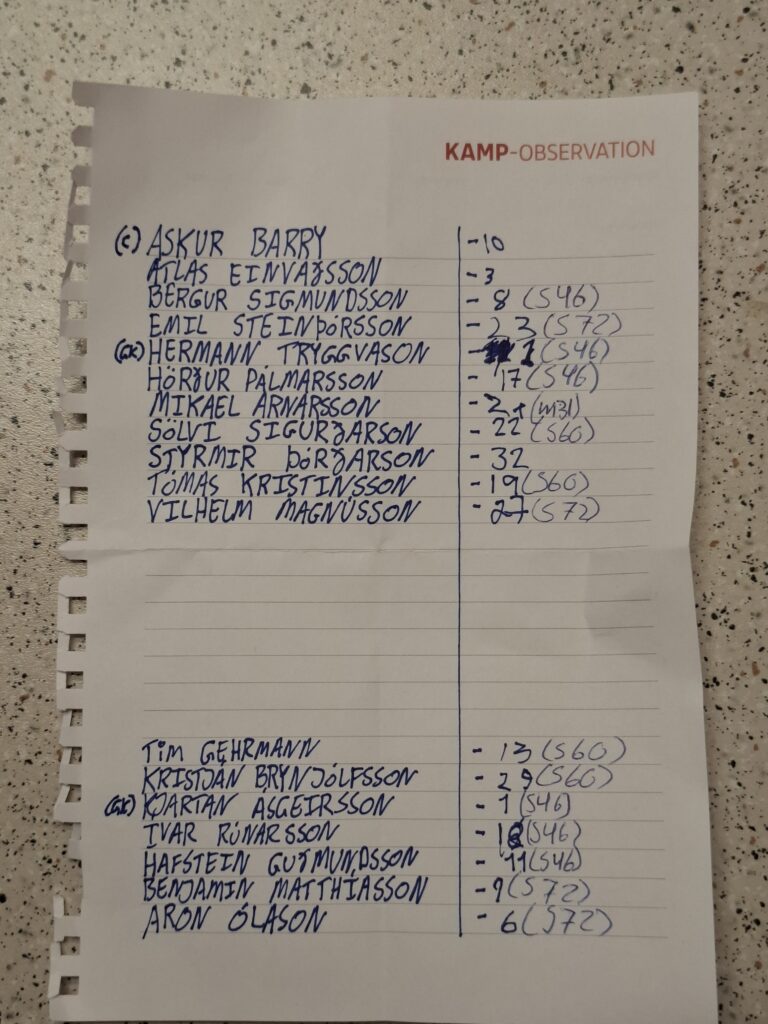 KAMP-OBSERVATION
(C) ASKUR BARRY - 10
ATLAS EINVAÐSSON - 3
BERGUR SIGMUNDSSON - 8 (S46)
EMIL STEINÞÓRSSON - 23 (S72)
(GK) HERMANN TRYGGVASON - 1 (S46)
HÖRÐUR PÁLMARSSON - 17 (S46)
MIKAEL ARNARSSON - (M31)
SÖLVI SIGURÐARSON - 22 (S60)
STYRMIR ÞÓRÐARSON - 32
TÓMAS KRISTINSSON - 19 (S60)
VILHELM MAGNÚSSON - 27 (S72)
TIM GEHRMANN - 13 (S60)
KRISTJÁN BRYNJÓLFSSON - 29 (S60)
(GK) KJARTAN ASGEIRSSON - 1 (S46)
IVAR RÚNARSSON - (S46)
HAFSTEIN GUÐMUNDSSON - 11 (S46)
BENJAMIN MATTHÍASSON - 9 (S72)
ARON ÓLASON - 6 (S72)